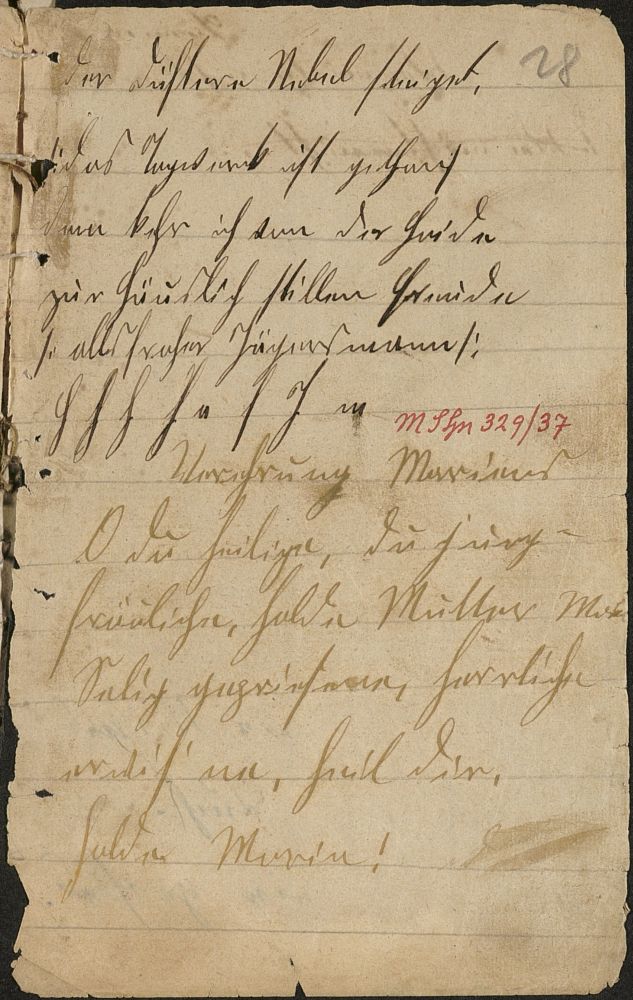 28
der düstere Nebel steiget,
/:das Tagwerk ist gethan:/
dann kehr ich von der Heide
zur häuslich stillen Freude
/: als froher Jägersmann/:
M S Hn 329/37
Verehrung Mariens
O du heilige, du jung-
fräuliche, holde Mutter
Selig gepriesene, herrliche
na, heil dir,
holde Maria!